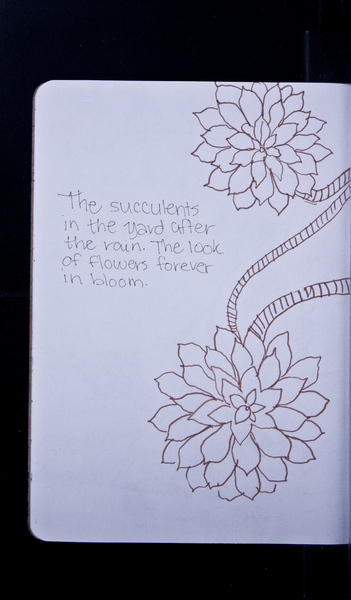 The succulents
in the yard after
the rain. The look
of flowers forever
in bloom.